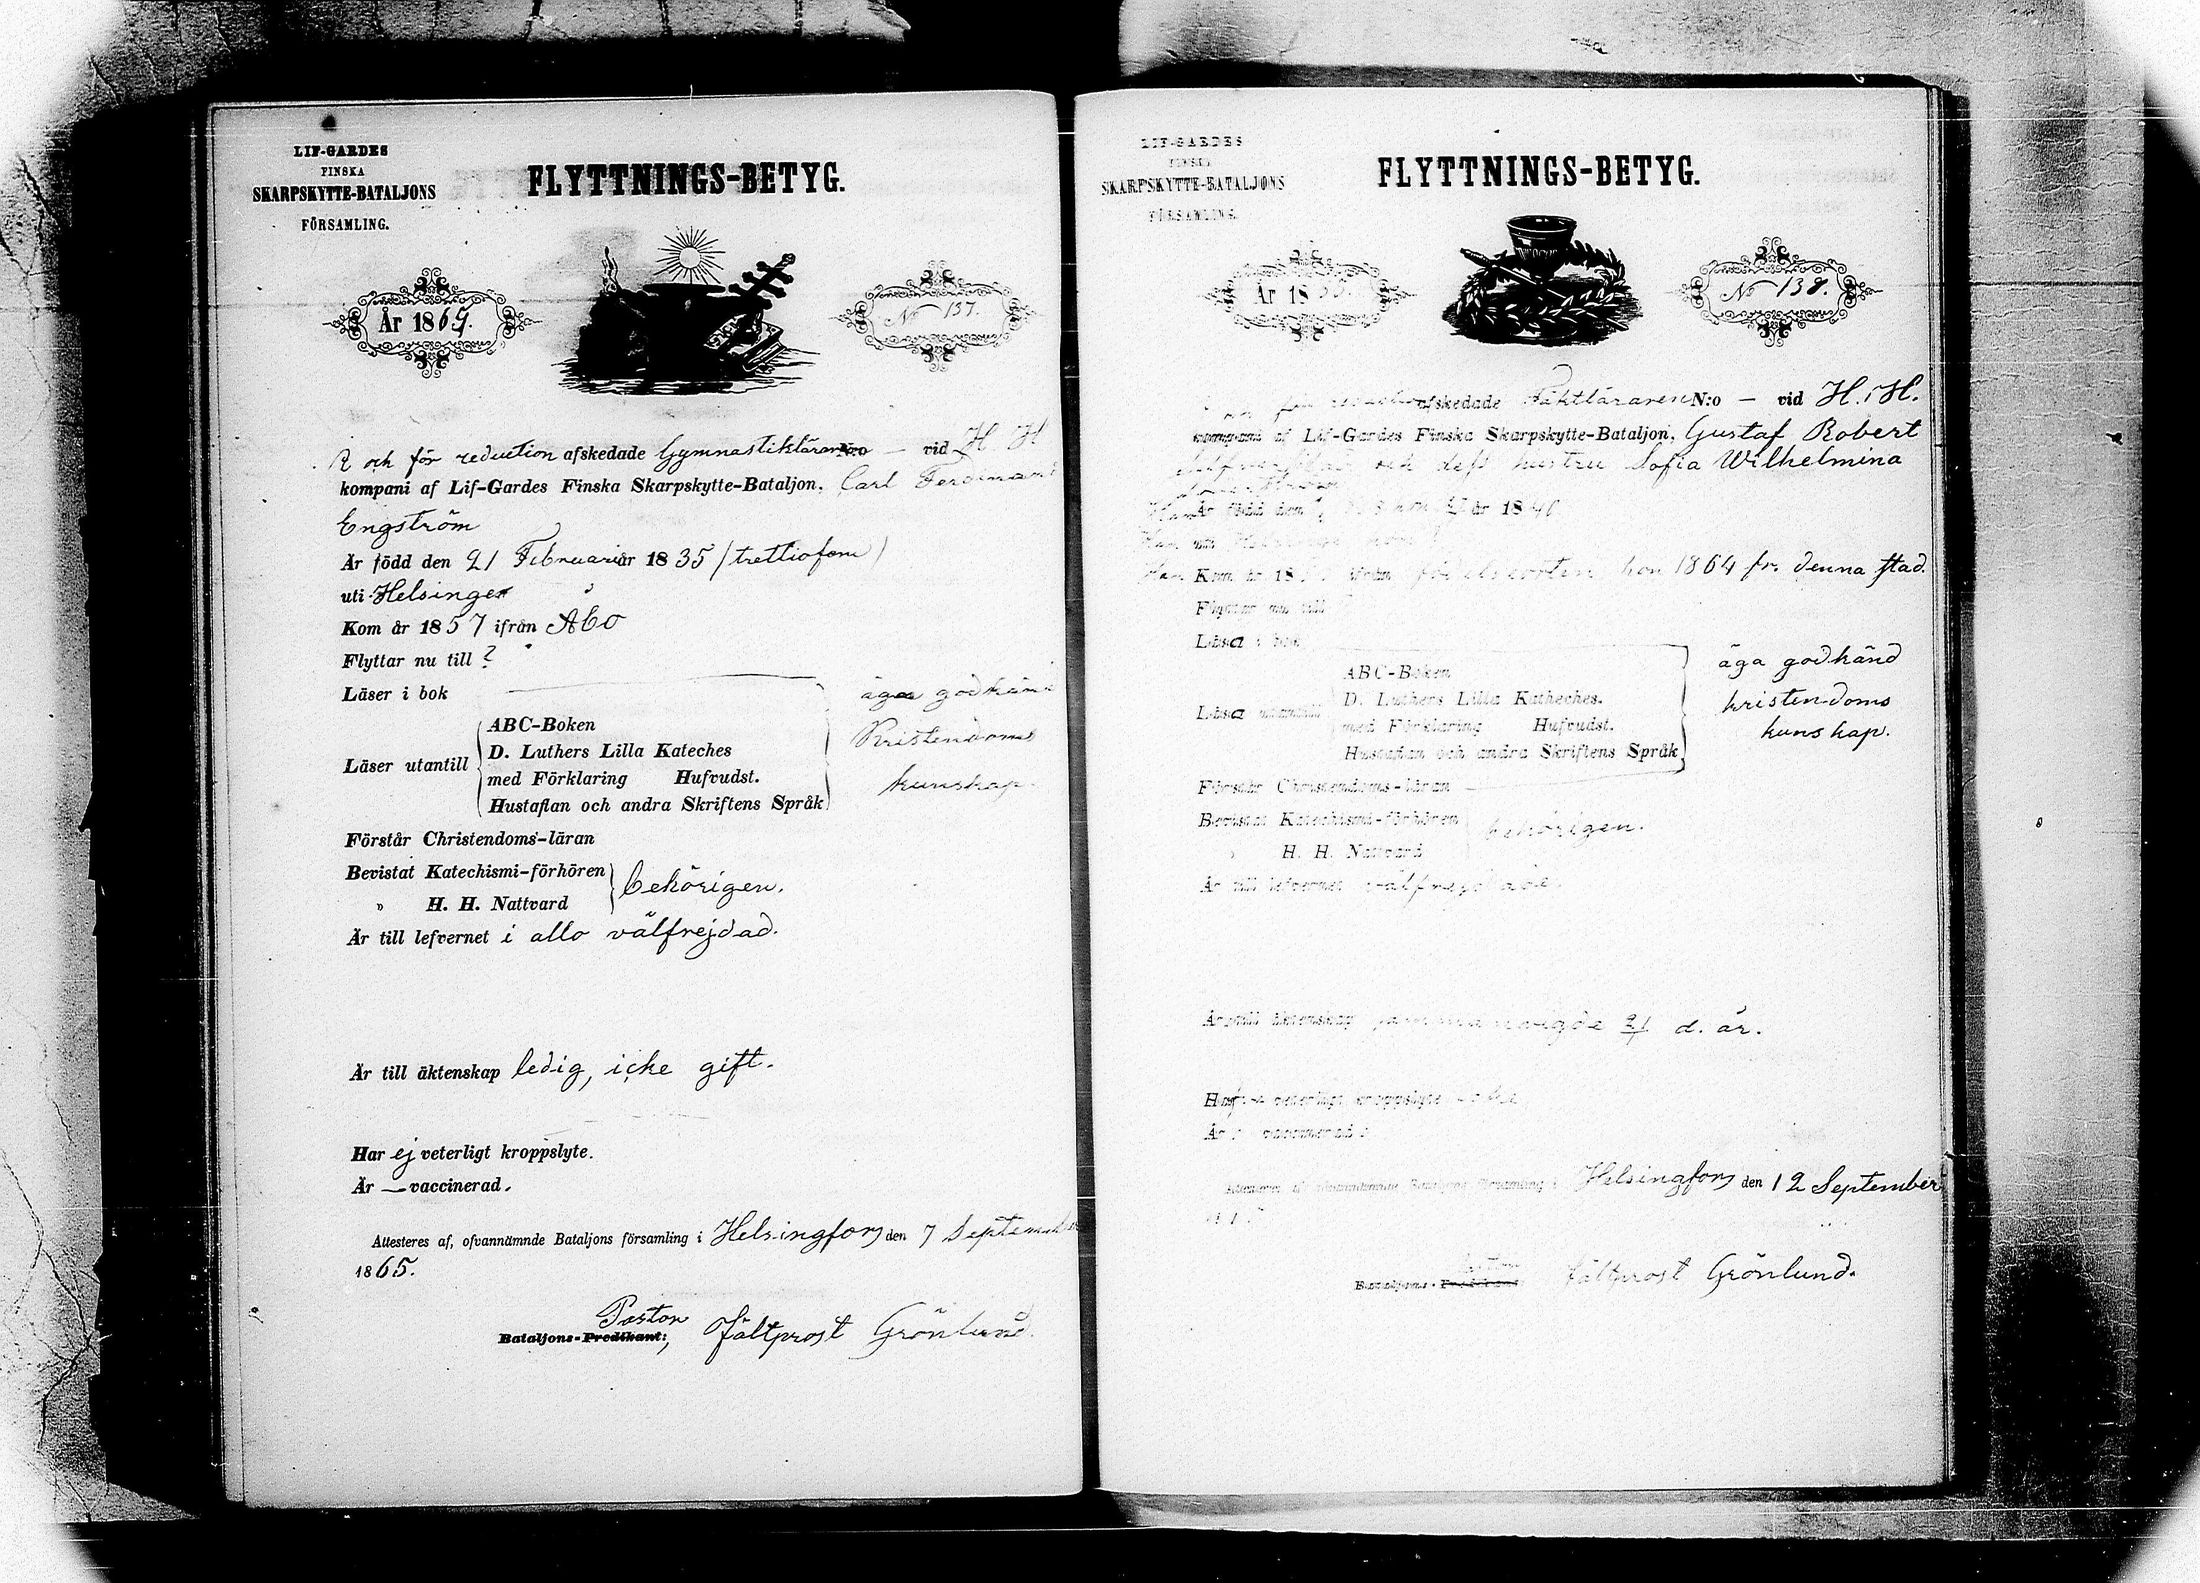 LIF-GARDES
FINSKA
SKARPSKYTTE-BATALJONS
FÖRSAMLING.
FLYTTNINGS-BETYG.
År 1865.
No 137.
R och för reduction afskedade Gymnastikläraren N:o — vid H. H
kompani af Lif-Gardes Finska Skarpskytte-Bataljon, Carl Ferdinand
Engström
Är född den 21 Februari år 1835 (trettiofem)
uti Helsinge
Kom år 1857 ifrån Åbo
Flyttar nu till ?
Läser i bok
äga godkänd
ABC-Boken
Kristendoms
D. Luthers Lilla Kateches
Läser utantill
med Förklaring Hufvudst.
kunskap.
Hustaflan och andra Skriftens Språk
Förstår Christendoms-läran
Bevistat Katechismi-förhören
behörigen.
„ H. H. Nattvard
Är till lefvernet i allo välfrejdad.
Är till äktenskap ledig, icke gift.
Har ej veterligt kroppslyte.
Är — vaccinerad.
Attesteres af, ofvannämnde Bataljons församling i Helsingfors den 7 September
1865.
Pastor
Bataljons-Predikant; Fältprost Grönlund.
LIF-GARDES
FINSKA
SKARPSKYTTE-BATALJONS
FÖRSAMLING.
FLYTTNINGS-BETYG.
År 18
No 138.
afskedade Fäktläraren N:o — vid H. H.
kompani af Lif-Gardes Finska Skarpskytte-Bataljon, Gustaf Robert
och dess hustru Sofia Wilhelmina
Är född den år 1840
Kom år 18 ifrån hon 1864 fr. denna stad.
Flyttar nu till
Läsa i bok
äga godkänd
ABC-Boken
kristendoms
D. Luthers Lilla Katheches.
Läsa utantill
med Förklaring Hufvudst.
kunskap.
Hustaflan och andra Skriftens Språk
Förstår Christendoms-läran
Bevistat Katechismi-förhören
behörigen.
H. H. Nattvard
Är till lefvernet välfrejdade.
Är till äktenskap sammanvigde d. år.
Haf veterligt kroppslyte
Är vaccinerad
Helsingfors den 12 September
Bataljons-Predikant Fältprost Grönlund.